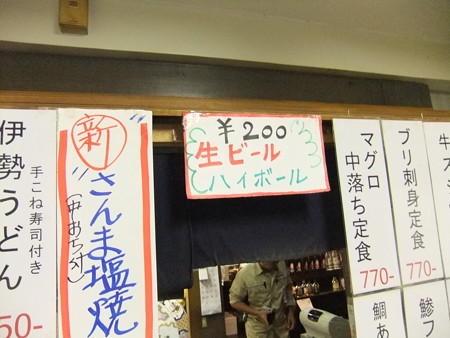 伊勢うどん
手こね寿司付き
50-
新
さんま塩焼
¥200
生ビール
ハイボール
マグロ
中落ち定食
770-
ブリ刺身定食
770-
鯛あ
鯵フ
牛ス